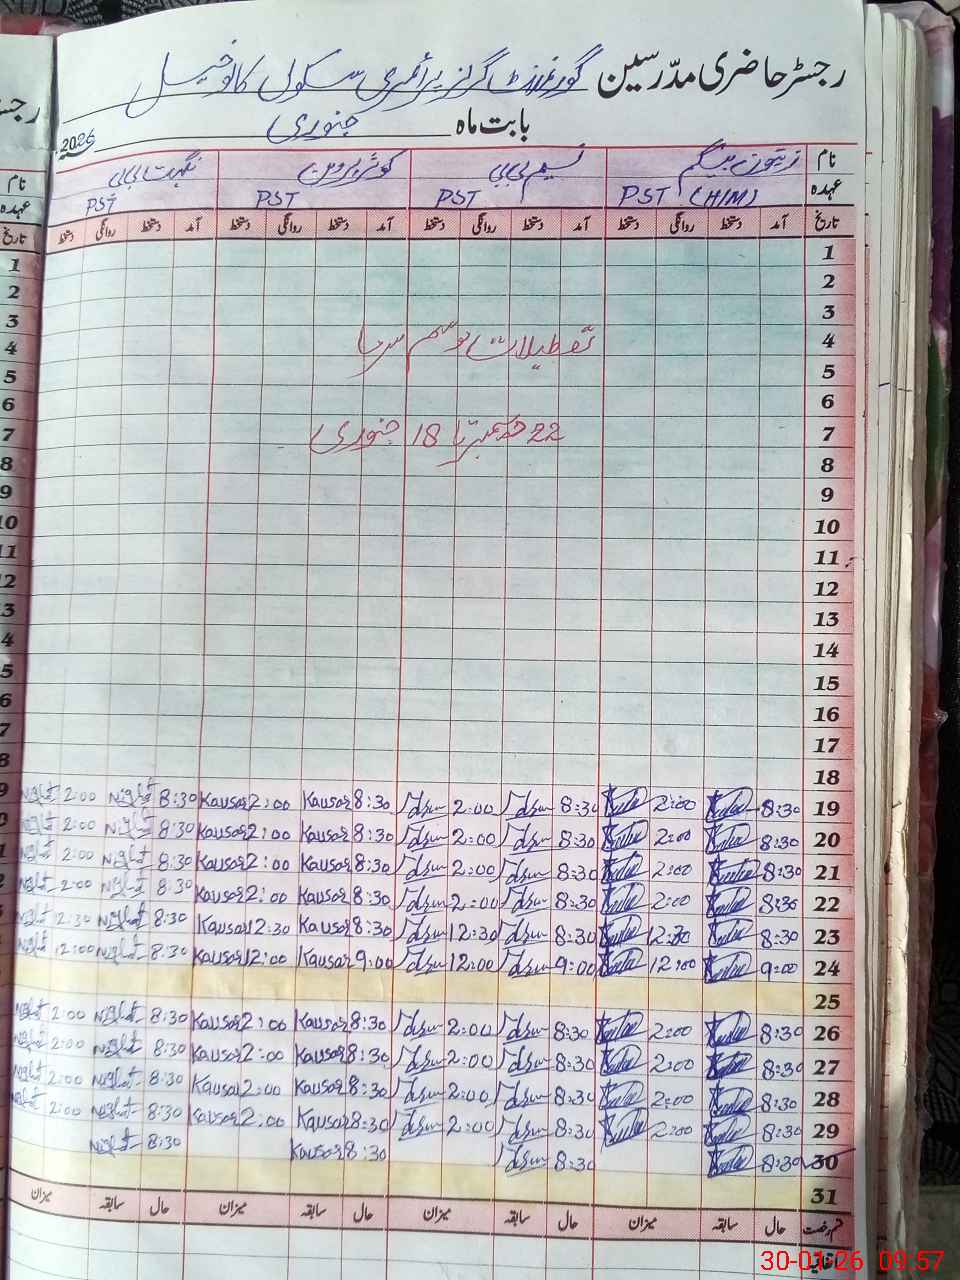 رجسٹر حاضری مدرسین گورنمنٹ گرلز پرائمری سکول کمالوخیل
بابت ماہ جنوری 2026
نام زیتون بیگم نسیم بی بی کوثر پروین نگہت بی بی
عہدہ PST (H/M) PST PST PST
تاریخ آمد دستخط روانگی دستخط آمد دستخط روانگی دستخط آمد دستخط روانگی دستخط آمد دستخط روانگی دستخط
1
2
3
تعطیلات موسم سرما
4
5
6
22 دسمبر تا 18 جنوری
7
8
9
10
11
12
13
14
15
16
17
18
19 8:30 2:00 8:30 2:00 8:30 Kausar 2:00 Kausar 8:30 Nighat 2:00 Nighat
20 8:30 2:00 8:30 2:00 8:30 Kausar 2:00 Kausar 8:30 Nighat 2:00 Nighat
21 8:30 2:00 8:30 2:00 8:30 Kausar 2:00 Kausar 8:30 Nighat 2:00 Nighat
22 8:30 2:00 8:30 2:00 8:30 Kausar 2:00 Kausar 8:30 Nighat 2:00 Nighat
23 8:30 12:30 8:30 12:30 8:30 Kausar 12:30 Kausar 8:30 Nighat 12:30 Nighat
24 9:00 12:00 9:00 12:00 9:00 Kausar 12:00 Kausar 8:30 Nighat 12:00 Nighat
25
26 8:30 2:00 8:30 2:00 8:30 Kausar 2:00 Kausar 8:30 Nighat 2:00 Nighat
27 8:30 2:00 8:30 2:00 8:30 Kausar 2:00 Kausar 8:30 Nighat 2:00 Nighat
28 8:30 2:00 8:30 2:00 8:30 Kausar 2:00 Kausar 8:30 Nighat 2:00 Nighat
29 8:30 2:00 8:30 2:00 8:30 Kausar 2:00 Kausar 8:30 Nighat 2:00 Nighat
30 8:30 8:30 8:30 Kausar 8:30 Nighat
31
قسم رخصت حال سابقہ میزان حال سابقہ میزان حال سابقہ میزان حال سابقہ میزان
اتفاقیہ
30-01-26 09:57